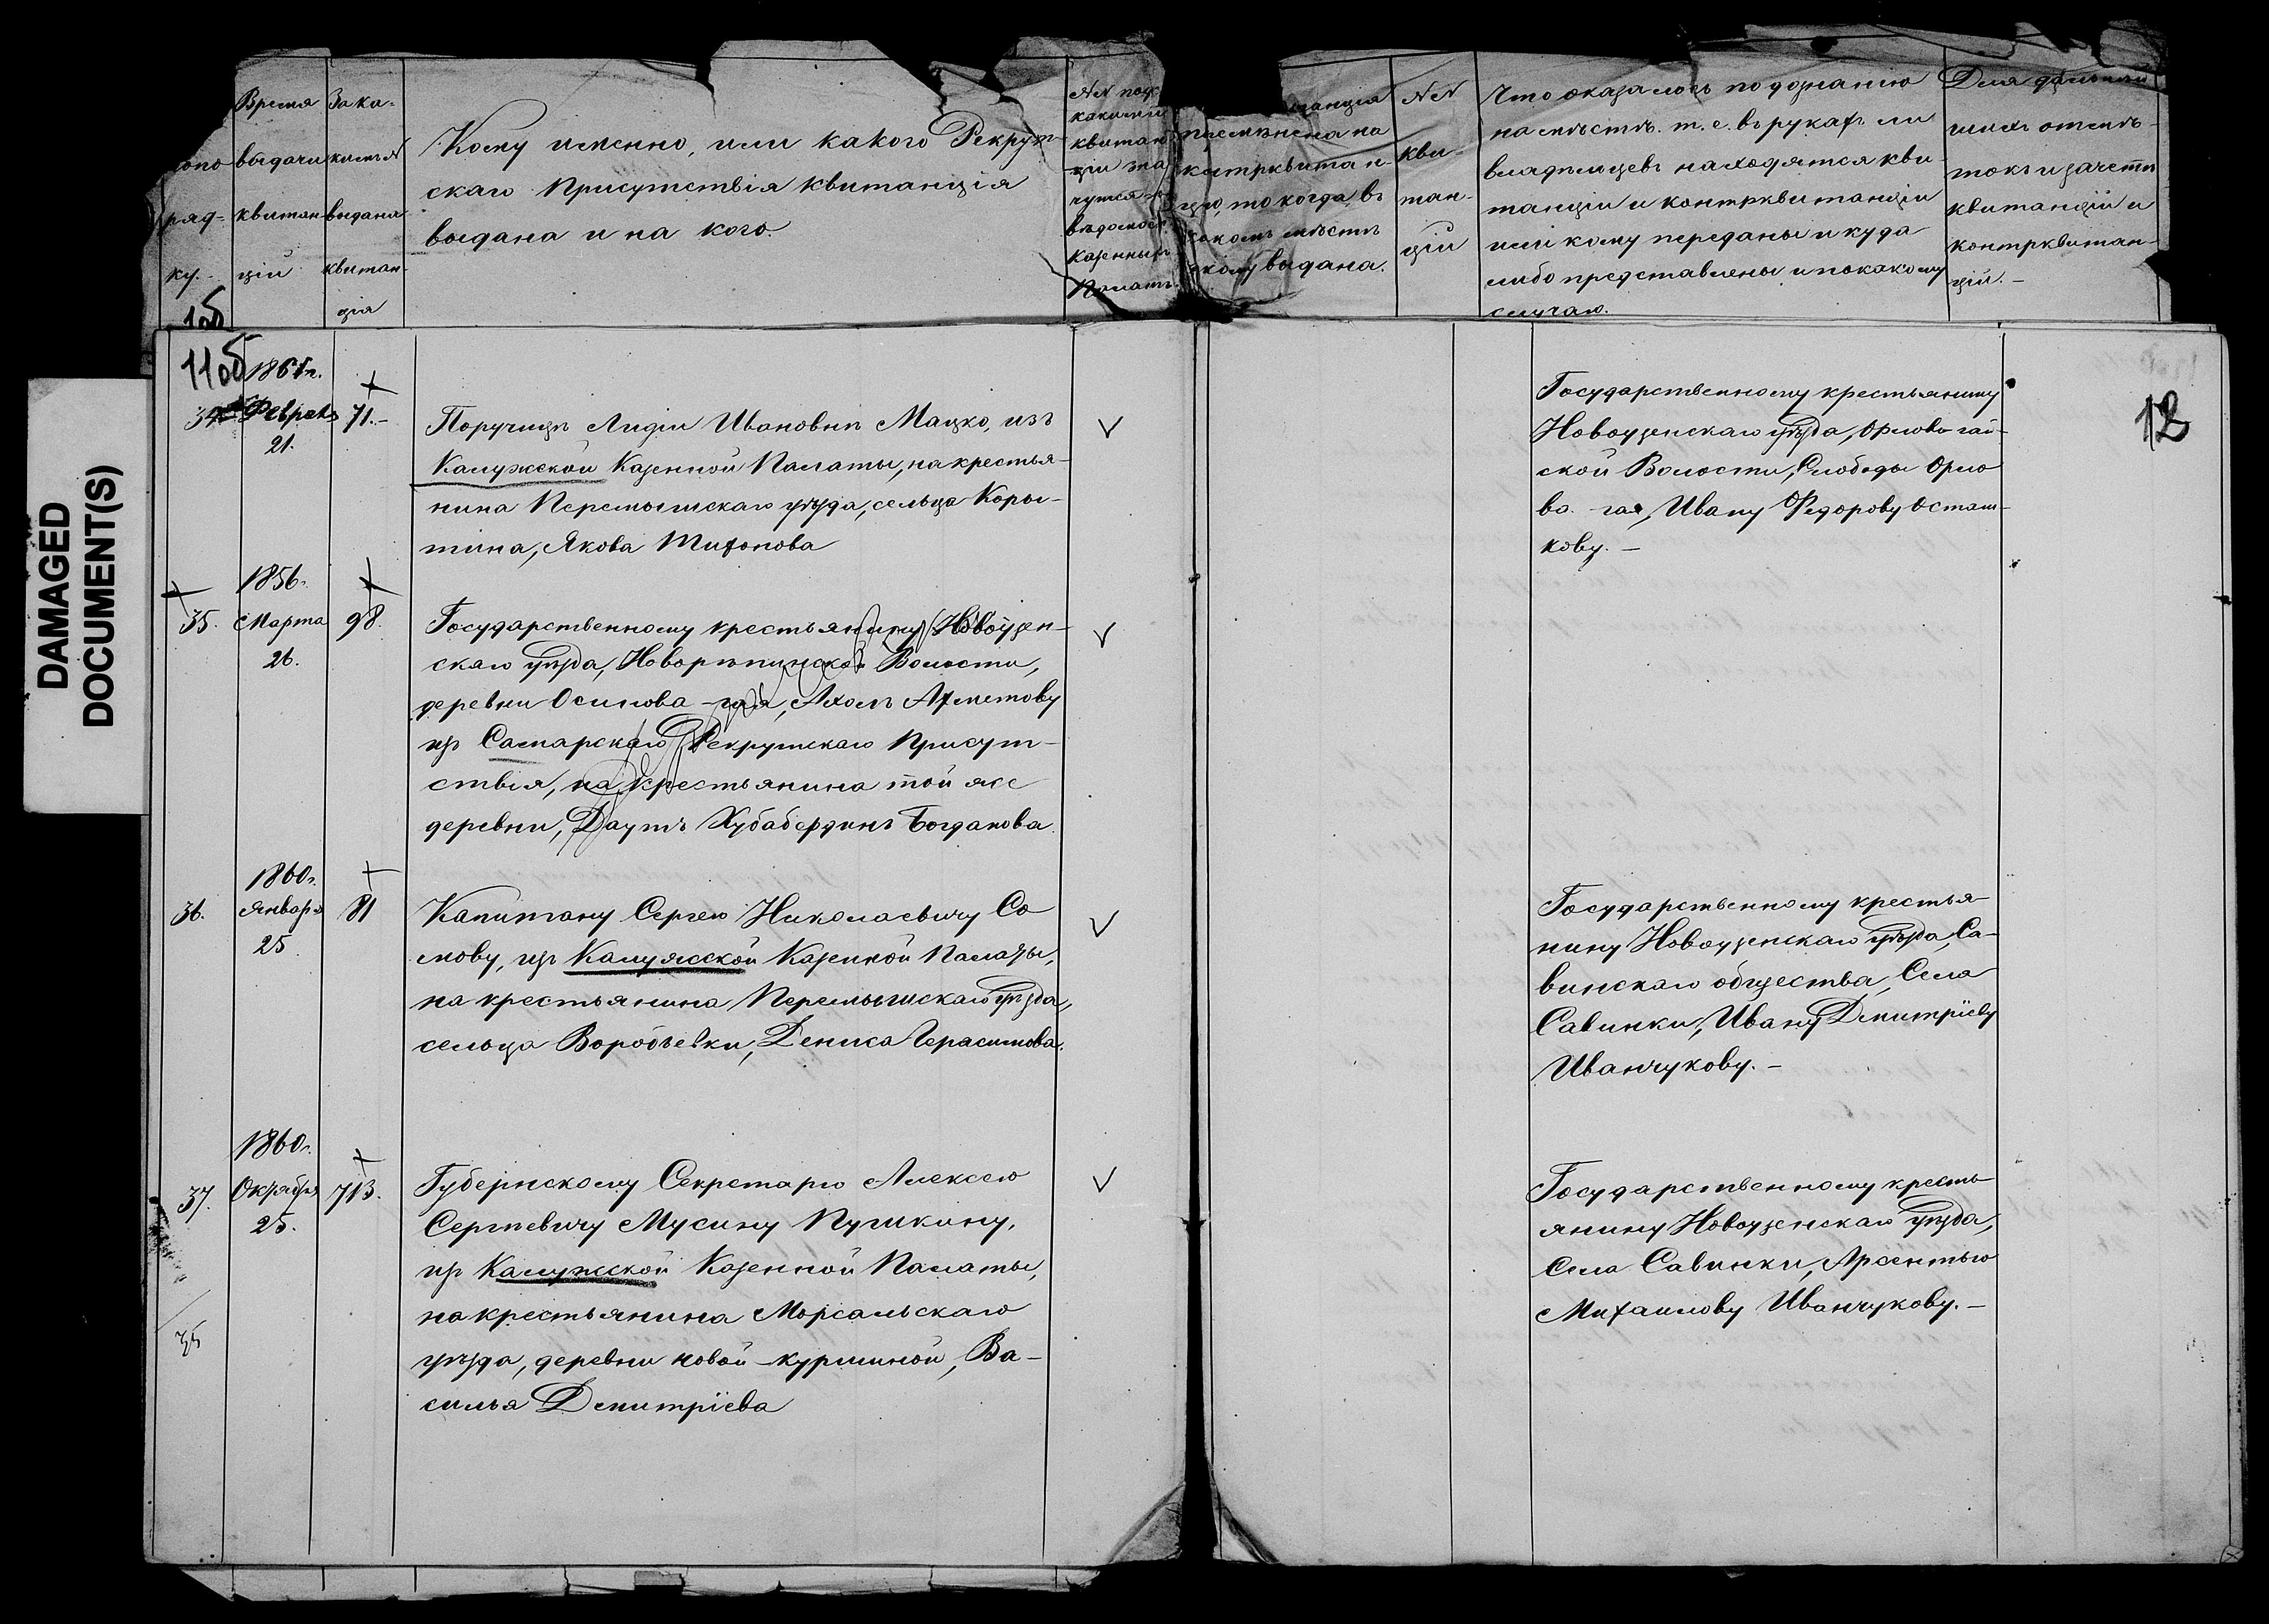 DAMAGED
DOCUMENT(S)
по ряд- ку.
Время выдачи квитан- цій
За ка- кимъ № выдана квитан- ція
Кому именно, или какого Рекрут-
скаго Присутствія квитанція
выдана и на кого.
№№ подъ
какими
квитан-
ціи зна
чутся
вѣдомос.
Казенныхъ
Палатъ.
на
контрквитан-
цію, то когда, въ
какомъ мѣстѣ
и кому выдана.
№№
кви-
тан-
цій
Что оказалось по дознанію
на мѣстѣ. т. е. въ рукахъ ли
владѣльцевъ находятся кви-
танціи и контрквитанціи
или кому переданы и куда
либо представлены и по какому
случаю.
Для дальнѣй
шихъ отмѣ-
токъ и зачетъ
квитанцій и
контрквитан-
цій. –
10об
11об
12
1861г.
34 Февраля 71.-
21.
Поручицѣ Лидіи Ивановнѣ Мацко, изъ
Калужской Казенной Палаты, на крестья-
нина Перемышскаго уѣзда, сельца Коры-
тина, Якова Тихонова
Государственному крестьянину
Новоузенскаго уѣзда, Орлово гай-
ской Волости, Слободы Орло
ва - гая, Ивану Федорову Осташ-
кову. –
1856.
35. Марта 98.
26.
Государственному крестьянину Новоузен-
скаго уѣзда, Новорѣпинской Волости,
деревни Осинова - гая, Ахмету
изъ Самарскаго Рекрутскаго Присут-
ствія, на крестьянина той же
деревни, Даутъ Хубабердинъ Богданова.
1860г.
36. Января 81
25
Капитану Сергею Николаевичу Со
мову, изъ Калужской Казенной Палаты,
на крестьянина Перемышскаго уѣзда,
сельца Воробьевки, Дениса Герасимова.
Государственному крестья-
нину Новоузенскаго уѣзда, Са-
винскаго общества, Села
Савинки, Ивану Дмитріеву
Иванчукову. –
1860г.
37. Октября 713.
25.
Губернскому Секретарю Алексею
Сергѣевичу Мусину Пушкину,
изъ Калужской Казенной Палаты,
на крестьянина Мосальскаго
уѣзда, деревни новой - куршиной, Ва-
силья Дмитріева
Государственному кресть-
янину Новоузенскаго уѣзда,
Села Савинки, Арсентью
Михаилову Иванчукову. –